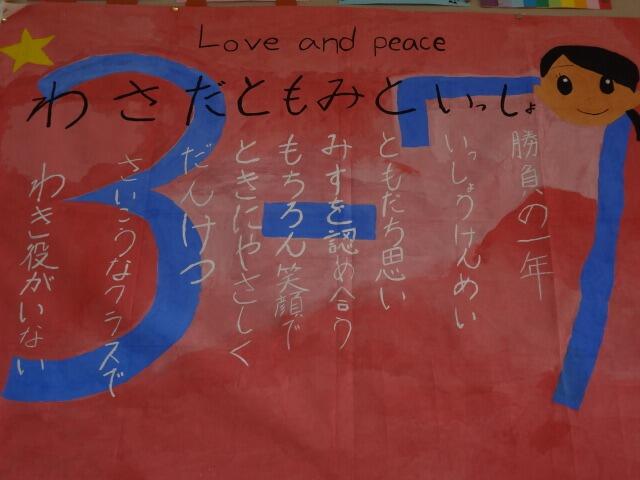 Love and peace
わさだともみといっしょ
勝負の一年
いっしょうけんめい
ともだち思い
みすを認め合う
もちろん笑顔で
ときにやさしく
だんけつ
さいこうなクラスで
わき役がいない
3-7